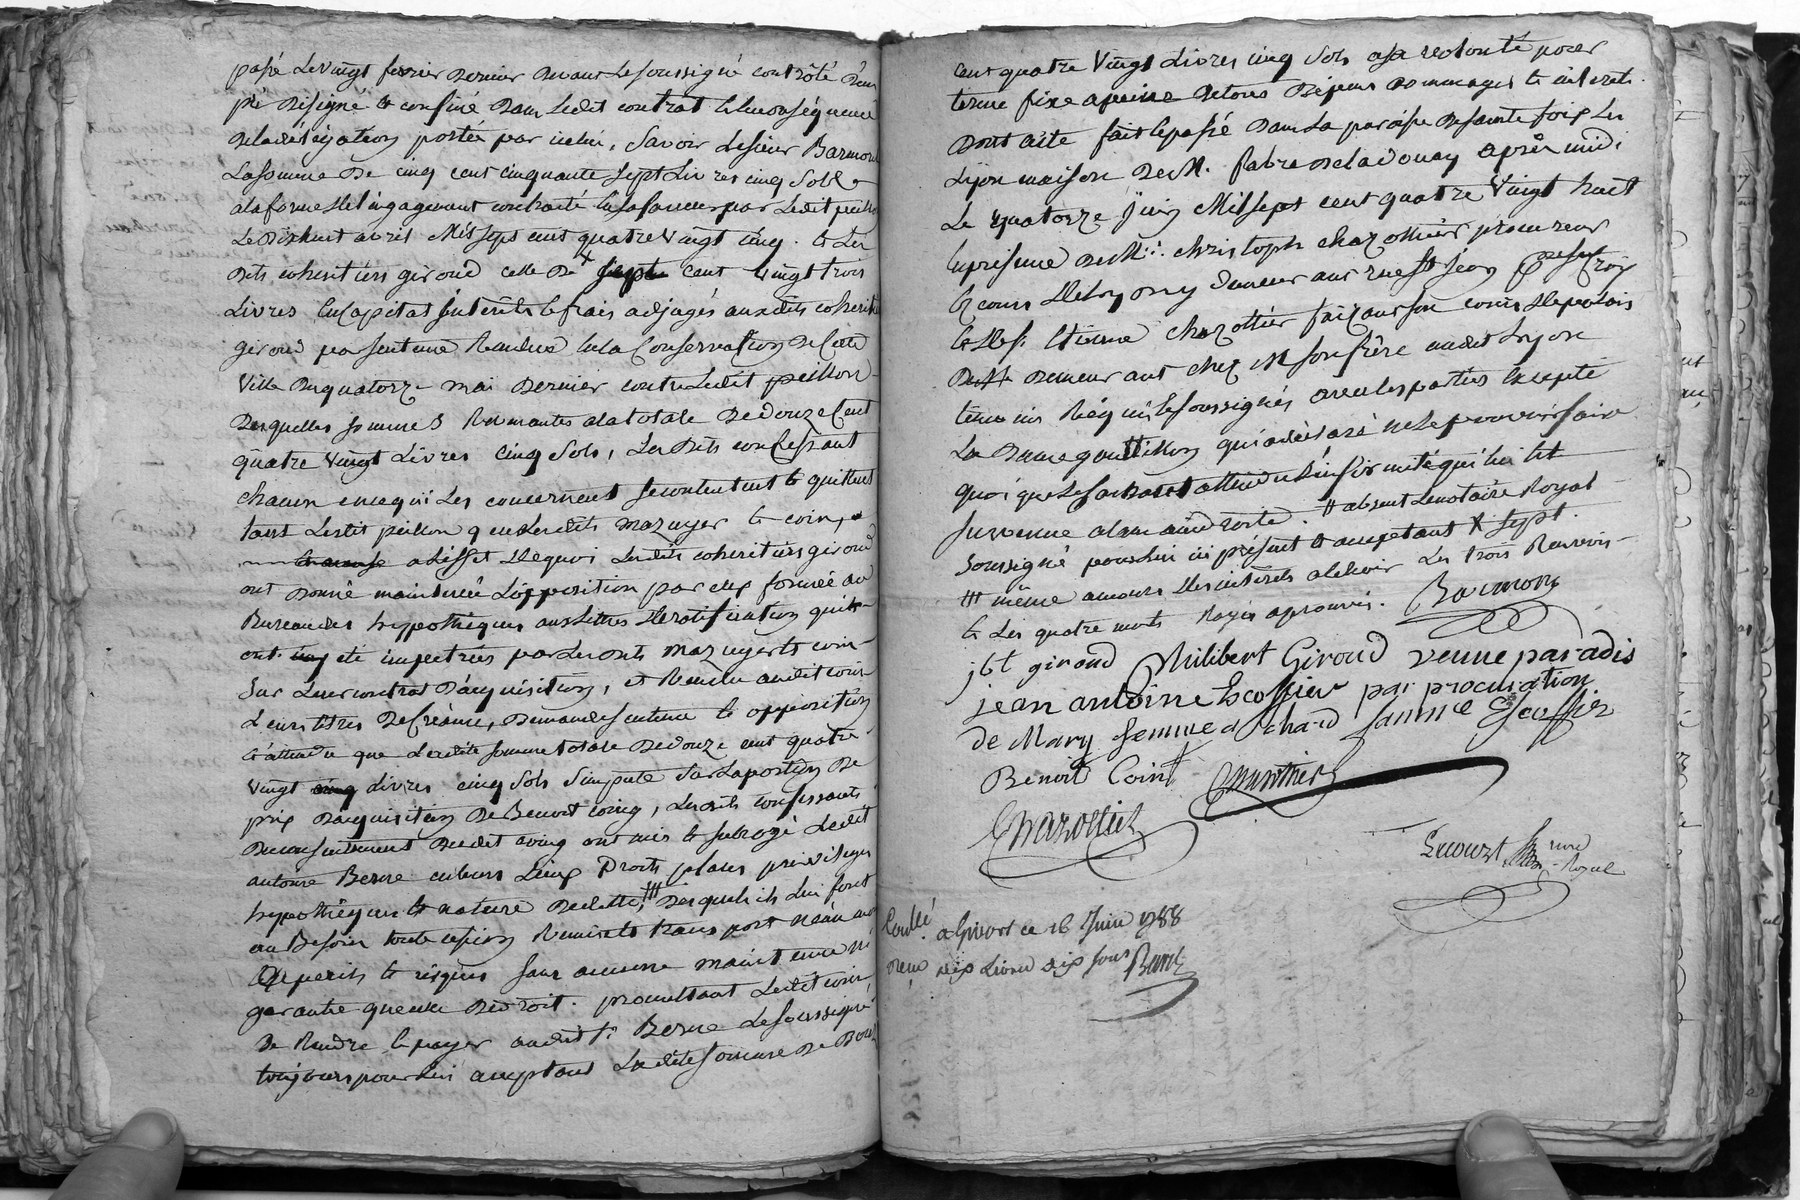 passé le vingt fevrier dernier devant le soussigné contrôlé
designé & confiné dans ledit contrat & en conséquence
de la délégation portée par icelui, savoir le sieur Barmon
la somme de cinq cent cinquante sept livres cinq sols
a la forme de l'engagement contracté en sa faveur par ledit peillon
le dixhuit avril mil sept cent quatre vingt cinq. & les
dits coheritiers giroud celle de sept cent vingt trois
livres en capital interets & frais adjugés auxdits coheritiers
giroud par sentence rendue en la Conservation de cette
ville du quatorze mai dernier contre ledit peillon
desquelles sommes revenantes a la totale de douze cent
quatre vingt livres cinq sols, les dits confessants
chacun en ce qui les concernent se contentent & quittent
tant ledit peillon que lesdits mazuyer & coing
a l'effet de quoi lesdits coheritiers giroud
ont donné mainlevée d'opposition par eux formée au
Bureau des hypothéques aux lettres de ratification qui
ont été impetrées par lesdits mazuyer & coin
sur leur contrat d'acquisition, et remis audit coin
leurs titres de créance, demandes sentence & opposition
& attendu que ladite somme totale de douze cent quatre
vingt livres cinq sols s'impute sur la portion de
prix d'acquisition de Benoit coing, lesdits confessants
du consentement dudit coing ont mis & subrogé ledit
antoine Berne en leurs lieux droits places privileges
hypothéques & nature de dette, ttt desquels ils lui font
au besoin toute cession remise & transport néan
perils & risques sans aucune maintenue ni
garantie quelconque de droit. promettant ledit coin
de rendre & payer audit sr Berne le soussigné
toujours pour lui acceptant ladite somme de douze
cent quatre vingt livres cinq sols a sa volonté pour
terme fixe a peine de tous dépens dommages & interets.
dont acte fait & passé dans la paroisse de sainte foix les
Lyon maison de M. fabre de ladouay après midi
le quatorze juin mil sept cent quatre vingt huit
en présence de Mr christophe chazottier procureur
ez cours de Lyon y demeurant rue st jean
& de sr Etienne chazottier faisant son cours de palais
demeurant chez M son frère audit Lyon
témoins requis & soussignés avec les parties excepté
la Dame qui a déclaré ne le pouvoir faire
quoique le sachant attendu l'infirmité qui lui est
survenue a la main droite. tt absent le notaire Royal
soussigné pour lui ici présent & acceptant x sept.
ttt même au cours des interets a echoir les trois Renvois
& les quatre mots Rayés aprouvés. Barmon
jbt giroud Philibert Giroud veuve paradis
jean antoine Escoffier par procuration
de Mary femme
Benoit Coint
Chazottier
Contlé a Givors ce 16 Juin 1788
Reçu dix livres dix sous